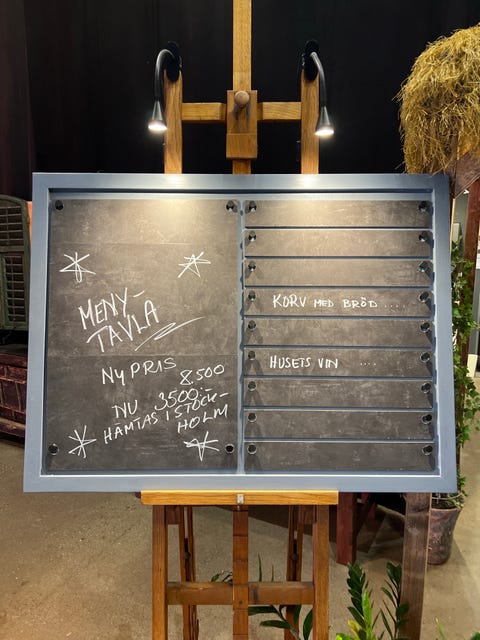 MENY-
TAVLA
NY PRIS 8.500
NU 3500:-
HÄMTAS I STOCK-
HOLM
KORV MED BRÖD ....
HUSETS VIN ....